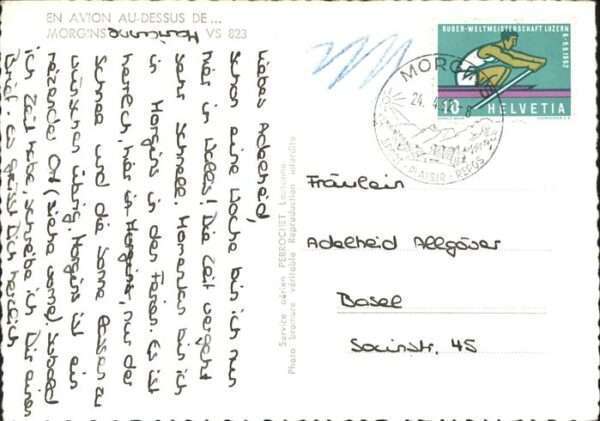 EN AVION AU-DESSUS DE...
MORGINS VS 823
Liebes Adelheid,
Schon eine Woche bin ich nun
hier im Wallis! Die Zeit vergeht
sehr schnell. Momentan bin ich
in Morgins in den Ferien. Es ist
herrlich hier in Morgins, nur der
Schnee und die Sonne lassen zu
wünschen übrig. Morgins ist ein
reizendes Ort (siehe vorne). Sobald
ich Zeit habe schreibe ich Dir einen
Brief. Es grüsst Dich herzlich
Marianne
Service aérien PERROCHET Lausanne
Photo bromure véritable Reproduction interdite
RUDER-WELTMEISTERSCHAFT LUZERN
6.-9.9.1962
10 HELVETIA
MORGINS
24.
PLAISIR - REPOS
Fräulein
Adelheid Allgöwer
Basel
Socinstr. 45